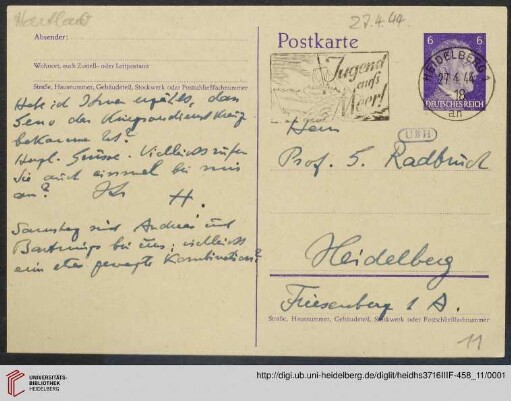 Hartlaub
27.4.44.
Absender:
Wohnort, auch Zustell- oder Leitpostamt
Straße, Hausnummer, Gebäudeteil, Stockwerk oder Postschließfachnummer
Hab ich Ihnen erzählt, dass
Geno das Kriegsverdienstkreuz
bekommen hat?
Herzl. Grüsse. Vielleicht rufen
Sie auch einmal bei mir
an? Ihr H.
Samstag sind Andreas und
bei uns; vielleicht
eine etwas gewagte Kombination?
Postkarte
Jugend
aufs
Meer!
6 6
HEIDELBERG 1
27.4.44
18
an
DEUTSCHES REICH
Herrn
Prof. G. Radbruch
UBH
Heidelberg
Friesenberg 1 A.
Straße, Hausnummer, Gebäudeteil, Stockwerk oder Postschließfachnummer
11
UNIVERSITÄTS-
BIBLIOTHEK
HEIDELBERG
http://digi.ub.uni-heidelberg.de/diglit/heidhs3716IIIF-458_11/0001